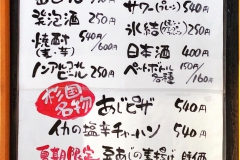 発泡酒 250円
焼酎(麦・芋) 540円/600円
ノンアルコールビール 250円
サワー(プレーン) 540円
氷結 250円
日本酒 400円
ペットボトル各種 160円
杉国名物 あじピザ 540円
イカの塩辛チャーハン 540円
夏期限定
時価